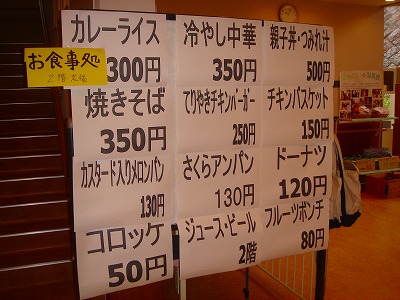 お食事処
カレーライス
300円
冷やし中華
350円
親子丼・つみれ汁
500円
焼きそば
350円
てりやきチキンバーガー
250円
チキンバスケット
150円
カスタード入りメロンパン
130円
さくらアンパン
130円
ドーナツ
120円
コロッケ
50円
ジュース・ビール
2階
フルーツポンチ
80円